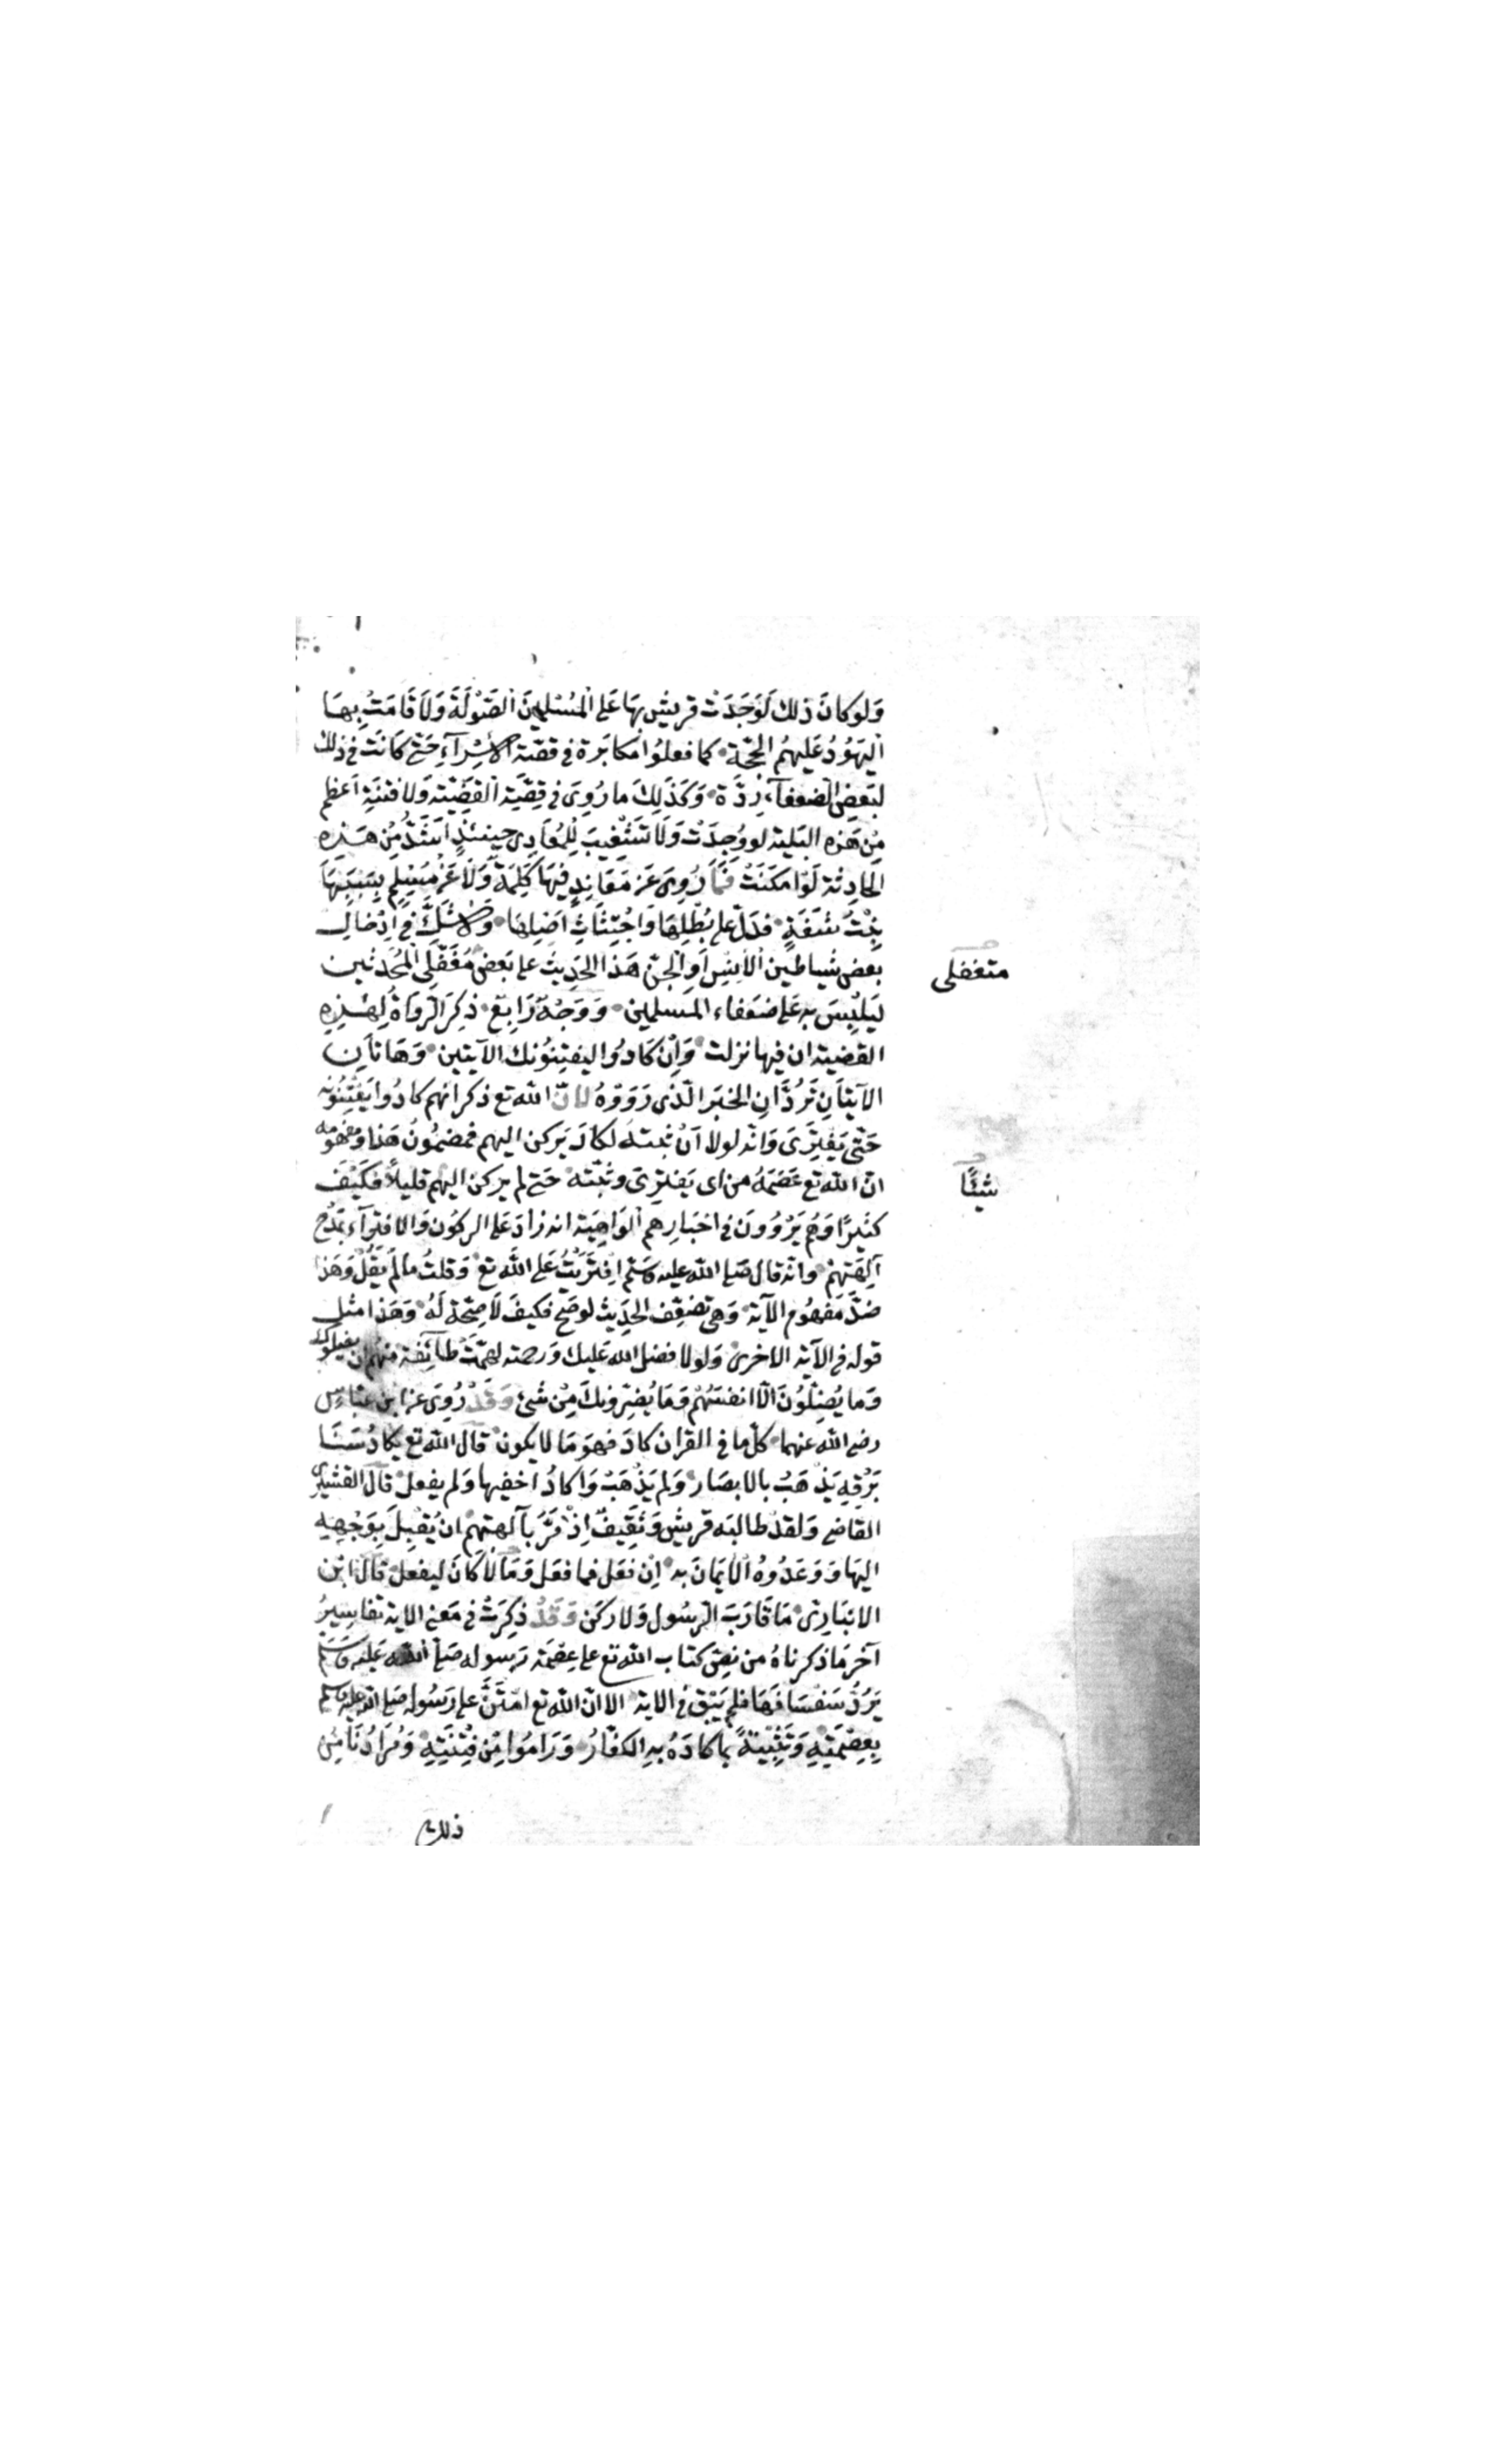 وَلَو كانَ ذلكَ لَوَجَدَتْ قريشٌ بهَا عَلى المُسْلِمِينَ الصَّوْلَةَ وَلَاَقَامَتْ بِهَا
اليَهُودُ عَلَيهِمُ الحجّة كما فعلُوا مكابَرة فى قصّة الاِسْرآءِ حَتى كَانَت فى ذلك
لبَعضِ الضعفآءِ رِدَّة وَكَذَلِكَ ما رُوِىَ فى قِصَّةِ القَضِيّة وَلا فتنَةِ اَعظم
مِن هَذِه البَلية لو وُجِدَتْ وَلَا تَشْغِيبَ لِلْمُعَادِى حِينئذٍ اَشَدُّ مِن هَذِه
الحَادِثة لَوْ اَمكَنَتْ فَمَا رُوِىَ عَن مُعَانِدٍ فيهَا كَلِمَة وَلَا عَنْ مُسْلِمٍ بِسَبَبِهَا
بِنْتُ شَفَةٍ فدَلَّ على بُطْلِهَا وَاجْتِثَاثِ اَصْلِهَا وَلَا شَكَّ فى اِدْخالِ
بعضِ شياطين الاِنسِ اَوِ الجنّ هَذا الحَدِيثَ على بَعضِ مُغَفَّلِى المُحَدثين
متغفلى
لِيَلْبِسَ به عَلى ضعَفاءِ المسلمين وَوَجْهٌ رَابِع ذكرَ الرُّوَاةُ لِهَذِهِ
القضية ان فيها نزلت وَاِنْ كَادُوا ليَفتِنُونك الآيتين وَهَاتَانِ
الآيتَانِ تَرُدَّانِ الخبَر الّذى رَوَوْهُ لانّ الله تع ذكر انهم كادُوا يَفْتِنُونه
حَتّى يَفترِىَ وَانّه لولا اَنْ ثبّته لكادَ يَركن اليهم فمضمُونُ هَذا ومفهومه
انّ الله تع عَصَمَهُ من ان يَفترِىَ وثبّته حَتى لم يركن اليهم قليلاً فكَيْفَ
شيئًا
كثيرًا وَهُم يَرْوُونَ فى اخبَارِهم الوَاهِيَة انه زادَ عَلى الركُون وَالافترآءِ بمَدْحِ
آلِهَتهِمْ وانّه قال صَلى الله عليه وسَلم افترَيْتُ عَلى الله تع وَقلتُ ما لَم يَقُلْ وَهَذا
ضدّ مَفهُومِ الآية وَهى تضعّفُ الحَدِيثَ لو صَحّ فكيفَ لَا صِحّة لَهُ وَهَذا مثل
قوله فى الآية الاخرى وَلولا فضل الله عَليك وَرحمته لهَمَّتْ طآئِفة منهُم ان يضلوك
وَما يُضِلّونَ الّا انفسَهُمْ وَمَا يُضِرّونكَ مِن شئ وَقَدْ رُوِىَ عَن ابن عَبّاسٍ
رضى الله عنهما كلّ ما فى القران كادَ فهوَ مَا لا يكون قال الله تع يكادُ سَنَا
بَرْقِهِ يَذهَبُ بالابصَارِ وَلم يَذْهَبْ وَاكادُ اخفيها وَلم يفعل قالَ القشيرى
القاضى وَلقدْ طالبَه قريش وَثقِيفٌ اِذْ مَرَّ بآلهتهِمْ ان يُقبِلَ بِوَجْهِهِ
اليهَا وَوَعَدُوهُ الاِيمَانَ به اِن فعَل فما فعَل وَمَا كانَ ليفعل قالَ ابن
الانبَارِى مَا قارَبَ الرسُول وَلا ركَن وَقَدْ ذكِرَتْ فى مَعنى الاية تفاسِيرُ
آخر مَا ذكرناهُ من نصِّ كتاب الله تع على عِصْمَة رَسوله صَلى الله عَليه وَسَلم
يَرُدُّ سَفْسَافَهَا فلم يَبْقَ فى الاية الا انّ الله تع امْتَنَّ على رَسُوله صَلى الله عليه وسلم
بِعِصْمَتِهِ وَتَثْبِيتهُ بمَا كادَهُ بهِ الكفّارُ وَرَامُوا مِن فِتْنَتِهِ وَمُرَادُنَا مِن
ذلك